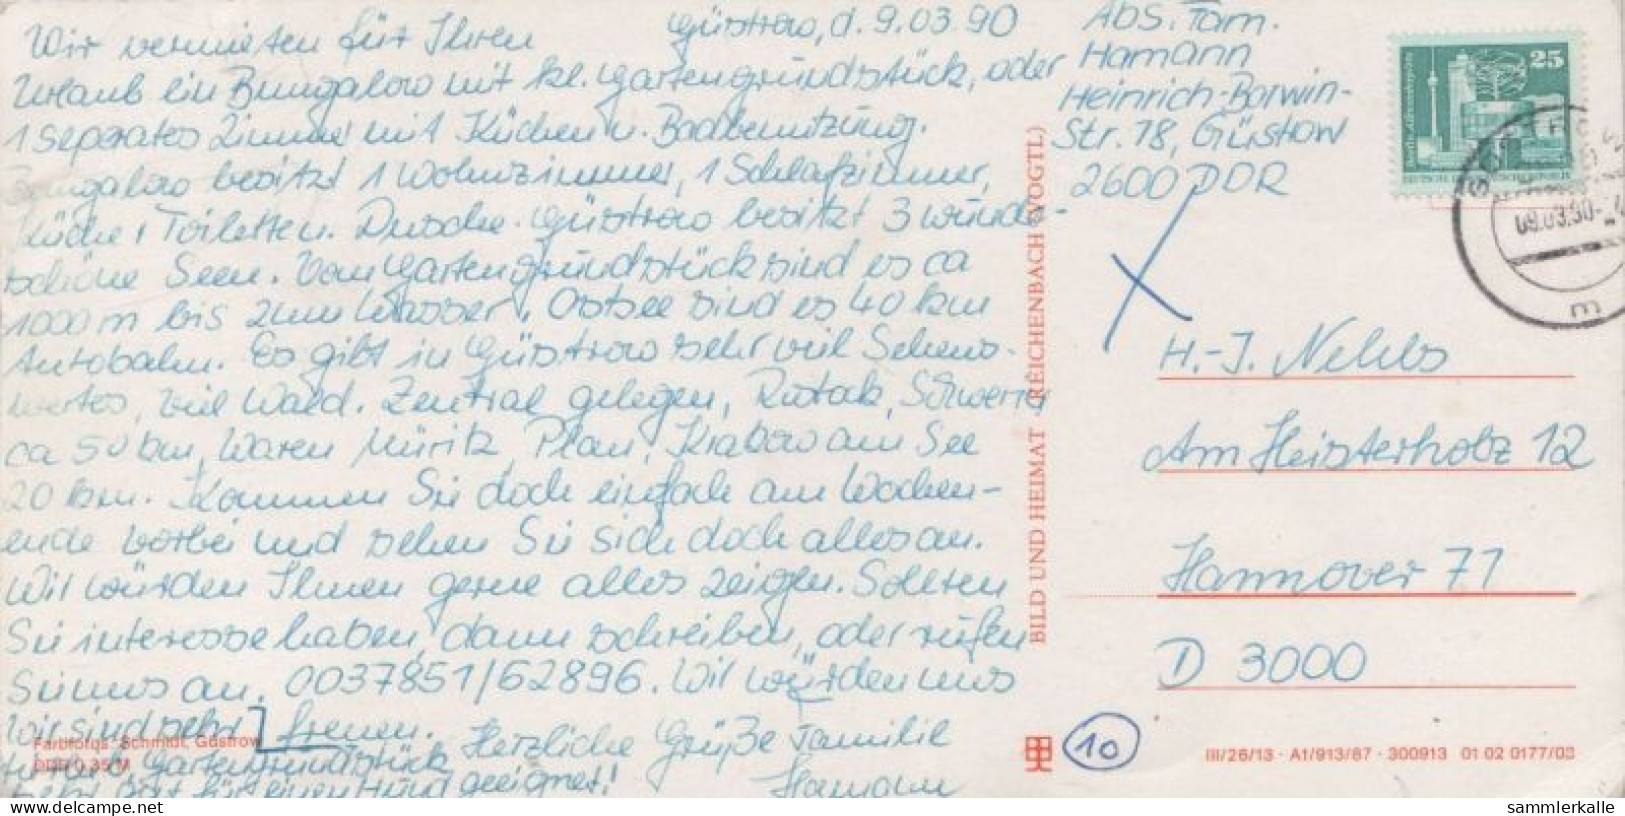 Güstrow, d. 9.03.90
Wir vermieten für Ihren
Urlaub ein Bungalow mit kl. Gartengrundstück, oder
1 separates Zimmer mit Küchen u. Badbenutzung.
Bungalow besitzt 1 Wohnzimmer, 1 Schlafzimmer,
Küche, Toiletten. Dusche. Güstrow besitzt 3 wunder-
schöne Seen. Vom Gartengrundstück sind es ca
1000 m bis zum Wasser. Ostsee sind es 40 km
Autobahn. Es gibt in Güstrow sehr viel Sehens-
wertes, viel Wald. Zentral gelegen, Schwerin
ca 50 km, Waren Müritz Plau, Krakow am See
20 km. Kommen Sie doch einfach am Wochen-
ende vorbei und sehen Sie sich doch alles an.
Wir würden Ihnen gerne alles zeigen. Sollten
Sie interesse haben, dann schreiben, oder rufen
Sie uns an. 0037851/62896. Wir würden uns
Wir sind sehr freuen. Herzliche Grüße Familie
Gartengrundstück Hamann
sehr gut für einen Hund geeignet!
Farbfotos: Schmidt, Güstrow
DDR 0,35 M
BILD UND HEIMAT REICHENBACH (VOGTL)
Abs. Fam.
Hamann
Heinrich-Borwin-
Str. 18, Güstrow
2600 DDR
25
09.03.90
m
H.-J. Nehls
Am Heisterholz 12
Hannover 71
D 3000
10
III/26/13 · A1/913/87 · 300913 01 02 0177/03
sammlerkalle